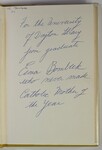 For the University
of Dayton Library
from graduate
Erma Bombeck
who never made
Catholic Mother of
the Year